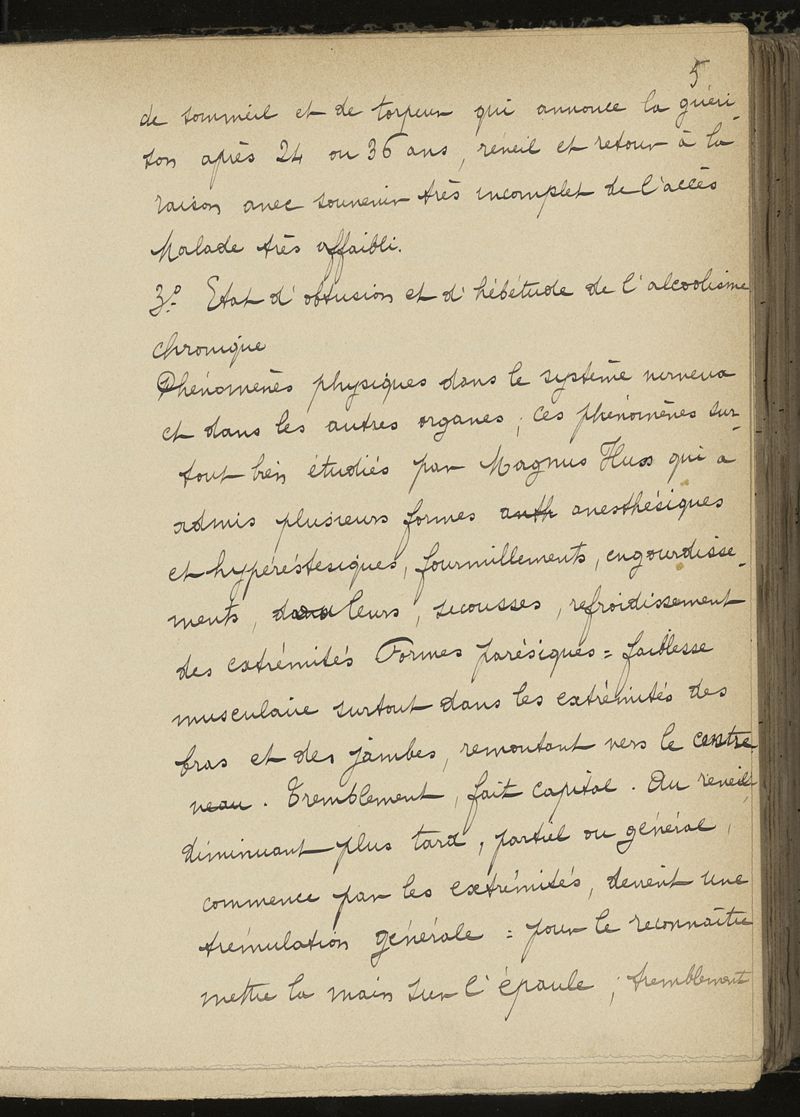 5
de sommeil et de torpeur qui annonce la guéri-
son après 24 ou 36 ans, réveil et retour à la
raison avec souvenir très incomplet de l'accès
Malade très affaibli.
3º Etat d'obtusion et d'hébétude de l'alcoolisme
chronique
Phénomènes physiques dans le système nerveux
et dans les autres organes ; ces phénomènes sur-
tout bien étudiés par Magnus Huss qui a
admis plusieurs formes anth anesthésiques
et hypéréstésiques, fourmillements, engourdisse-
ments, douleurs, secousses, refroidissement
des extrémités Formes parésiques = faiblesse
musculaire surtout dans les extrémités des
bras et des jambes, remontant vers le centre
neau. Tremblement, fait capital. Au réveil
diminuant plus tard, partiel ou général,
commence par les extrémités, devient une
trémulation générale = pour le reconnaître
mettre la main sur l'épaule ; tremblement